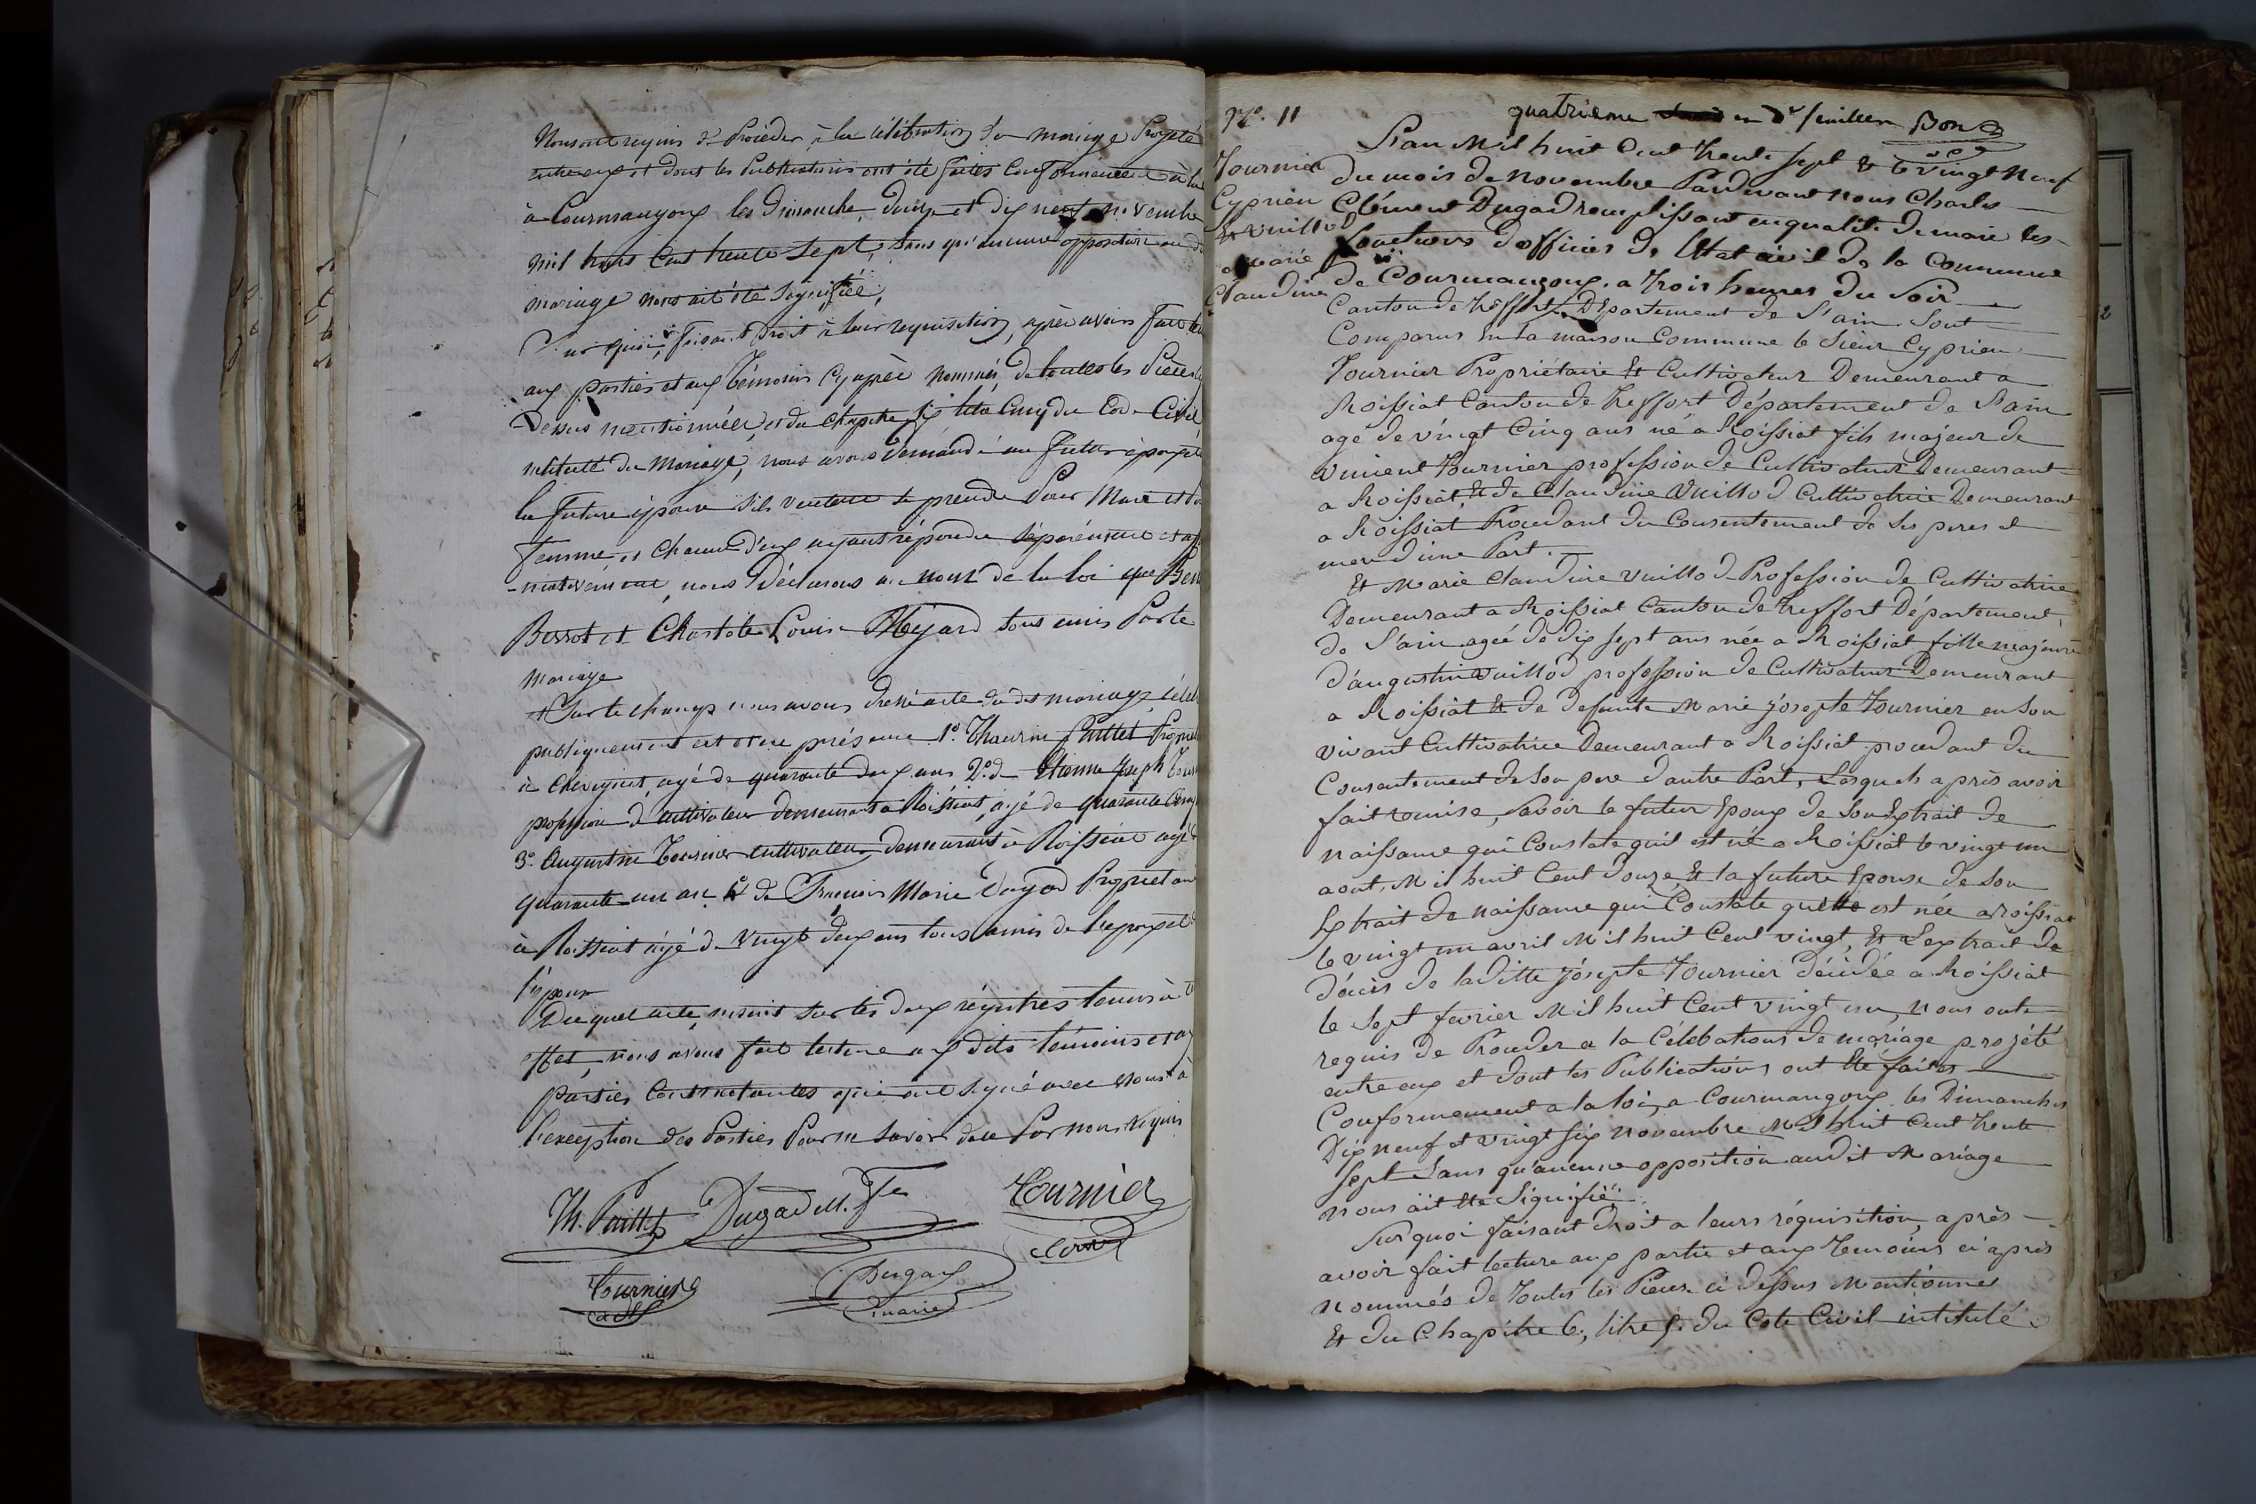 Nous ont requis de Procéder à la célébration du mariage Projeté
entre eux et dont les Publications ont été faites Conformément à la
à Courmangoux les Dimanche douze et dix neuf novembre
mil huit Cent trente Sept, Sans qu'aucune opposition au d
mariage nous ait été Signifiée,
Sur quoi, faisant Droit à leur requisition, après avoir fait
aux parties et aux témoins Cy après nommés, de toutes les Pièces
Dessus mentionnées, et du Chapitre six titre Cinq du Code Civil
intitulé du Mariage, nous avons demandé au futur époux et
la future épouse s'ils veulent se prendre Pour Mari et
femme, et chacun d'eux ayant répondu séparément et
-mativement, nous Déclarons au Nom de la loi que
Berrot et Charlote Louise Mejard sont unis Par le
mariage
Sur le champ nous avons dressé acte du dit mariage
publiquement en présence 1°. Thaurin Paillet
à Chevignat, agé de quarante deux ans 2°. d Etienne Joseph
profession de Cultivateur demeurant à Roissiat, agé de quarante
3°. Augustin Tournier cultivateur demeurant à Roissiat agé
quarante un an 4° de François Marie Dugad Propriétaire
à Roissiat agé de vingt deux ans tous amis de l'époux et
l'épouse
Duquel acte, inscrit sur les deux régistres tenus à
effet, nous avons fait lecture aux dits témoins et
parties Contractantes qui ont signé avec Nous à
l'exception des Parties Pour ne Savoir de ce Par nous requis
Th. Paillet Dugad M. Fs Tournier
Tournier Dugad
maire
N°. 11
quatrième en de feuillet Bon
L'an Mil huit Cent Trente Sept & le vingt Neuf
Tournier du mois de Novembre Pardevant nous Charles
Cyprien Clément Dugad remplissant en qualité de maire les
& vuillod fonctions d'officier de l'Etat civil de la Commune
Marie de Courmangoux, a Trois heures du Soir
Claudine Canton de Treffort, Département de l'ain Sont
Comparus en la maison Commune le Sieur Cyprien
Tournier Propriétaire Et Cultivateur Demeurant a
Roissiat Canton de Treffort Département de l'ain
agé de vingt Cinq ans né a Roissiat fils majeur de
vincent Tournier profession de Cultivateur Demeurant
a Roissiat, & de Claudine Vuillod Cultivatrice Demeurant
a Roissiat Procedant du Consentement de Ses peres et
mere d'une Part.
Et Marie Claudine vuillod Profession de Cultivatrice
Demeurant a Roissiat Canton de Treffort Département
de l'ain agée de dix sept ans née a Roissiat fille majeure
d'augustin vuillod profession de Cultivateur Demeurant
a Roissiat & de Defunte Marie josepte Tournier en Son
vivant Cultivatrice Demeurant a Roissiat procedant du
Consentement de Son pere d'autre Part, Lesquels après avoir
fait remise, Savoir le futur Epoux de Son Extrait de
naissance qui Constate qu'il est né a Roissiat le vingt un
aout, Mil huit Cent Douze, & la future Epouse de Son
Extrait de Naissance qui Constate quelle est née a roissiat
le vingt un avril Mil huit Cent vingt, & L'extrait de
décès de laditte josepte Tournier Décédée a Roissiat
le Sept fevrier Mil huit Cent vingt un, Nous ont
requis de Proceder a la Célebations de mariage projété
entre eux et dont les Publications ont Eté faites
Conformement a la loi, a Courmangoux les Dimanches
Dix Neuf et vingt Six Novembre Mil huit Cent Trente
Sept Sans qu'aucune opposition audit Mariage
nous ait Eté Signifiéé.
Sur quoi faisant droit a leurs réquisition, après
avoir fait lecture aux partie et aux Temoins ci après
nommés de Toutes les Pièces ci dessus Mentionnés
Et du Chapitre 6, titre 5. du Code Civil intitulé